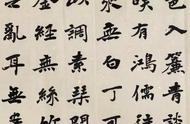 入簾青談
咲有鴻儒
無白丁可
以調素琴
金經無絲竹
亂耳無